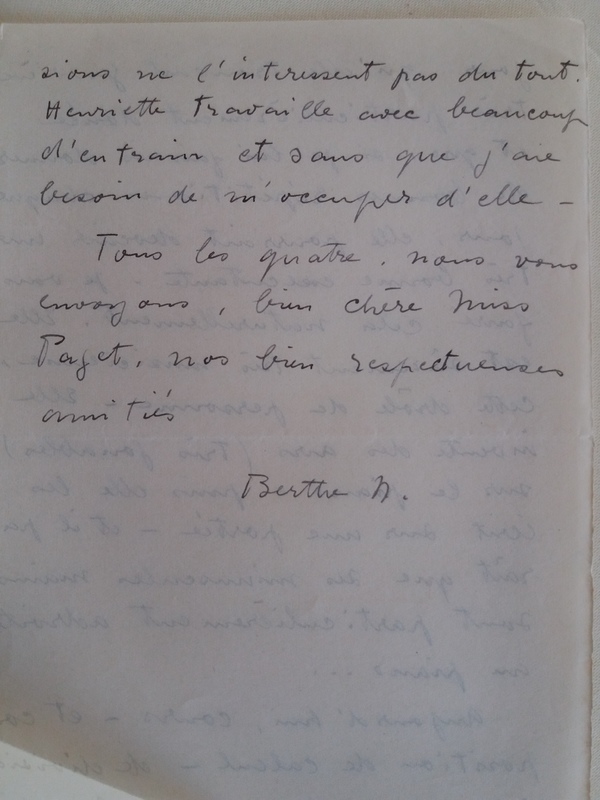 sions ne l'interessent pas du tout.
Henriette travaille avec beaucoup
d'entrain et sans que j'aie
besoin de m'occuper d'elle –
Tous les quatre, nous vous
envoyons, bien chère Miss
Paget, nos bien respectueuses
amitiés
Berthe N.